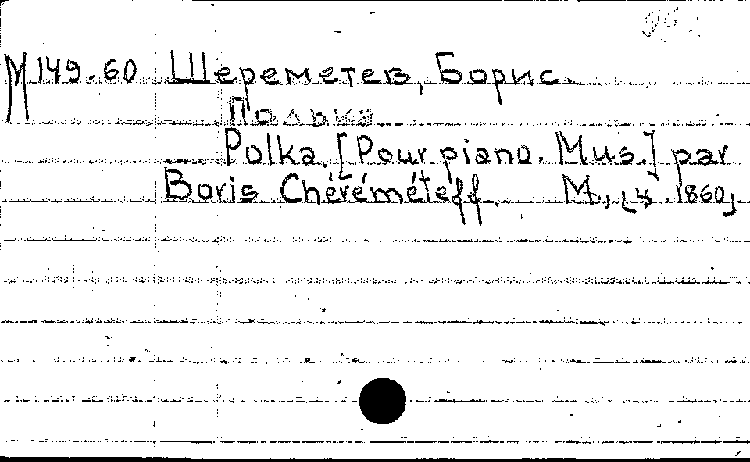 М 149.60 Шереметев, Борис.
Полька
Polka. [Pour piano. Mus.] par
Boris Chérémeteff. M., [ц. 1860]